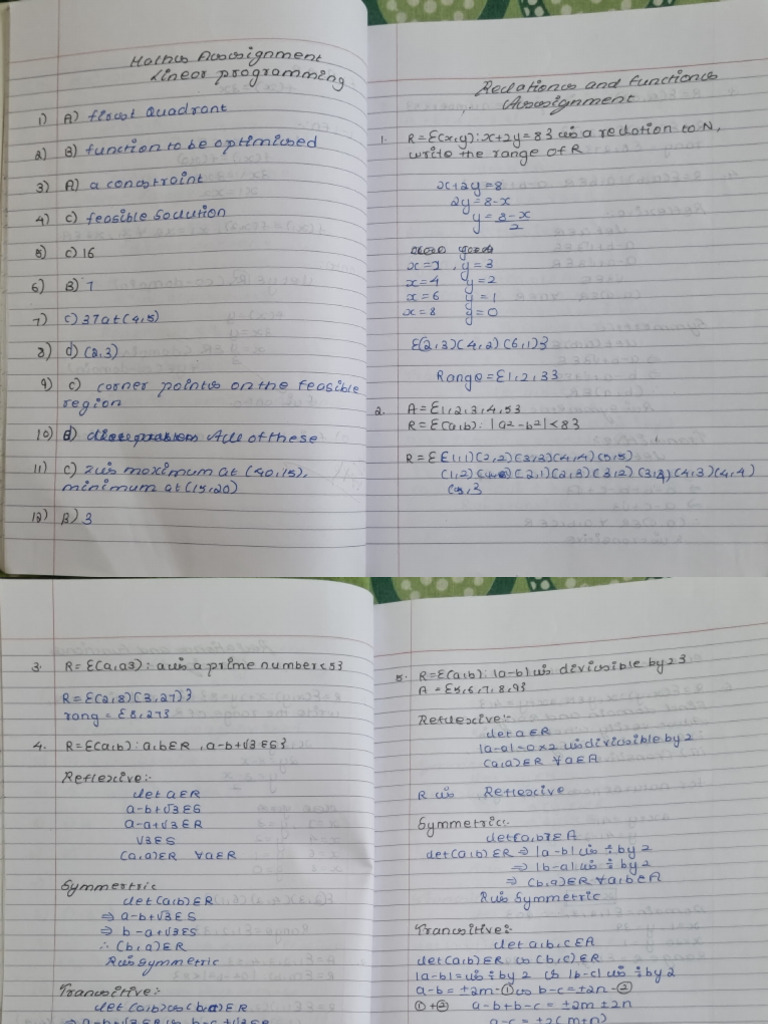 Maths Assignment
Linear programming
1) A) first Quadrant
2) B) function to be optimised
3) A) a constraint
4) C) feasible solution
5) C) 16
6) B) 7
7) C) 37 at (4,5)
8) d) (2,3)
9) C) corner points on the feasible
region
10) d) All of these
11) C) Z is maximum at (40,15),
minimum at (15,20)
12) B) 3
Relations and functions
Assignment
1. R={(x,y):x+2y=8} is a relation to N,
write the range of R
x+2y=8
2y=8-x
y=8-x
2
x=2, y=3
x=4 y=2
x=6 y=1
x=8 y=0
{(2,3)(4,2)(6,1)}
Range={1,2,3}
2. A={1,2,3,4,5}
R={(a,b): |a²-b²|<8}
R={(1,1)(2,2)(3,3)(4,4)(5,5)
(1,2)(2,1)(2,3)(3,2)(3,4)(4,3)(4,4)
3. R={(a,a3): a is a prime number<5}
R={(2,8)(3,27)}
rang={8,27}
4. R={(a,b): a,b∈R, a-b+√3∈S}
Reflexive:-
Let a∈R
a-b+√3∈S
a-a+√3∈R
√3∈S
(a,a)∈R ∀a∈R
Symmertric
Let(a,b)∈R
⇒ a-b+√3∈S
⇒ b-a+√3∈S
∴ (b,a)∈R
R is Symmetric
Transitive:-
Let (a,b) ∈R
5. R={(a,b): |a-b| is divisible by 2}
A={5,6,7,8,9}
Reflexive:-
Let a∈R
|a-a|=0×2 is divisible by 2
(a,a)∈R ∀a∈A
R is Reflexive
Symmetric:-
Let(a,b)∈A
Let(a,b)∈R ⇒ |a-b| is ÷ by 2
⇒ |b-a| is ÷ by 2
⇒ (b,a)∈R ∀a,b∈A
R is Symmetric
Transitive:-
Let a,b,c∈R
Let(a,b)∈R (b,c)∈R
|a-b|= is ÷ by 2 |b-c| is ÷ by 2
a-b=±2m-① b-c=±2n-②
①+② a-b+b-c=±2m±2n
a-c=±2(m+n)